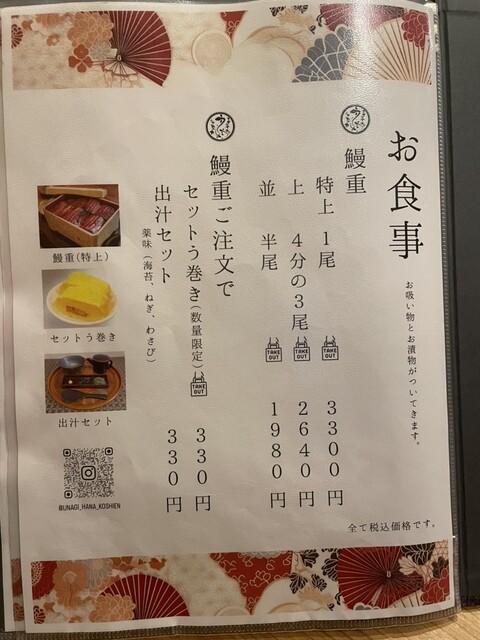 お食事
お吸い物とお漬物がついてきます。
鰻重
特上 1尾 TAKE OUT 3300円
上 4分の3尾 TAKE OUT 2640円
並 半尾 TAKE OUT 1980円
鰻重ご注文で
セットう巻き(数量限定) TAKE OUT 330円
出汁セット 330円
薬味(海苔、ねぎ、わさび)
鰻重(特上)
セットう巻き
出汁セット
@UNAGI_HANA_KOSHIEN
全て税込価格です。